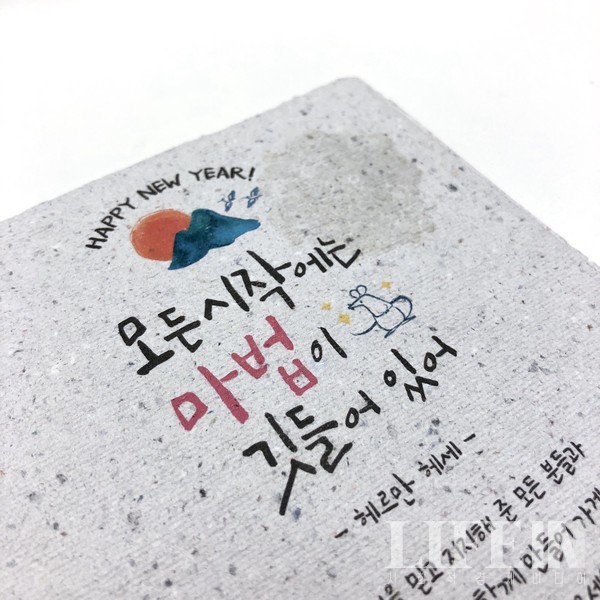 HAPPY NEW YEAR!
모든 시작에는
마법이
깃들어 있어
- 헤르만 헤세 -
믿고 지지해 준 모든 분들과
함께 만들어 가게
LIFEIN